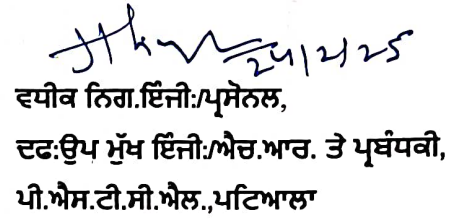 24/2/25
ਵਧੀਕ ਨਿਗ.ਇੰਜੀ:/ਪ੍ਰਸੋਨਲ,
ਦਫ:ਉਪ ਮੁੱਖ ਇੰਜੀ:/ਐਚ.ਆਰ. ਤੇ ਪ੍ਰਬੰਧਕੀ,
ਪੀ.ਐਸ.ਟੀ.ਸੀ.ਐਲ.,ਪਟਿਆਲਾ